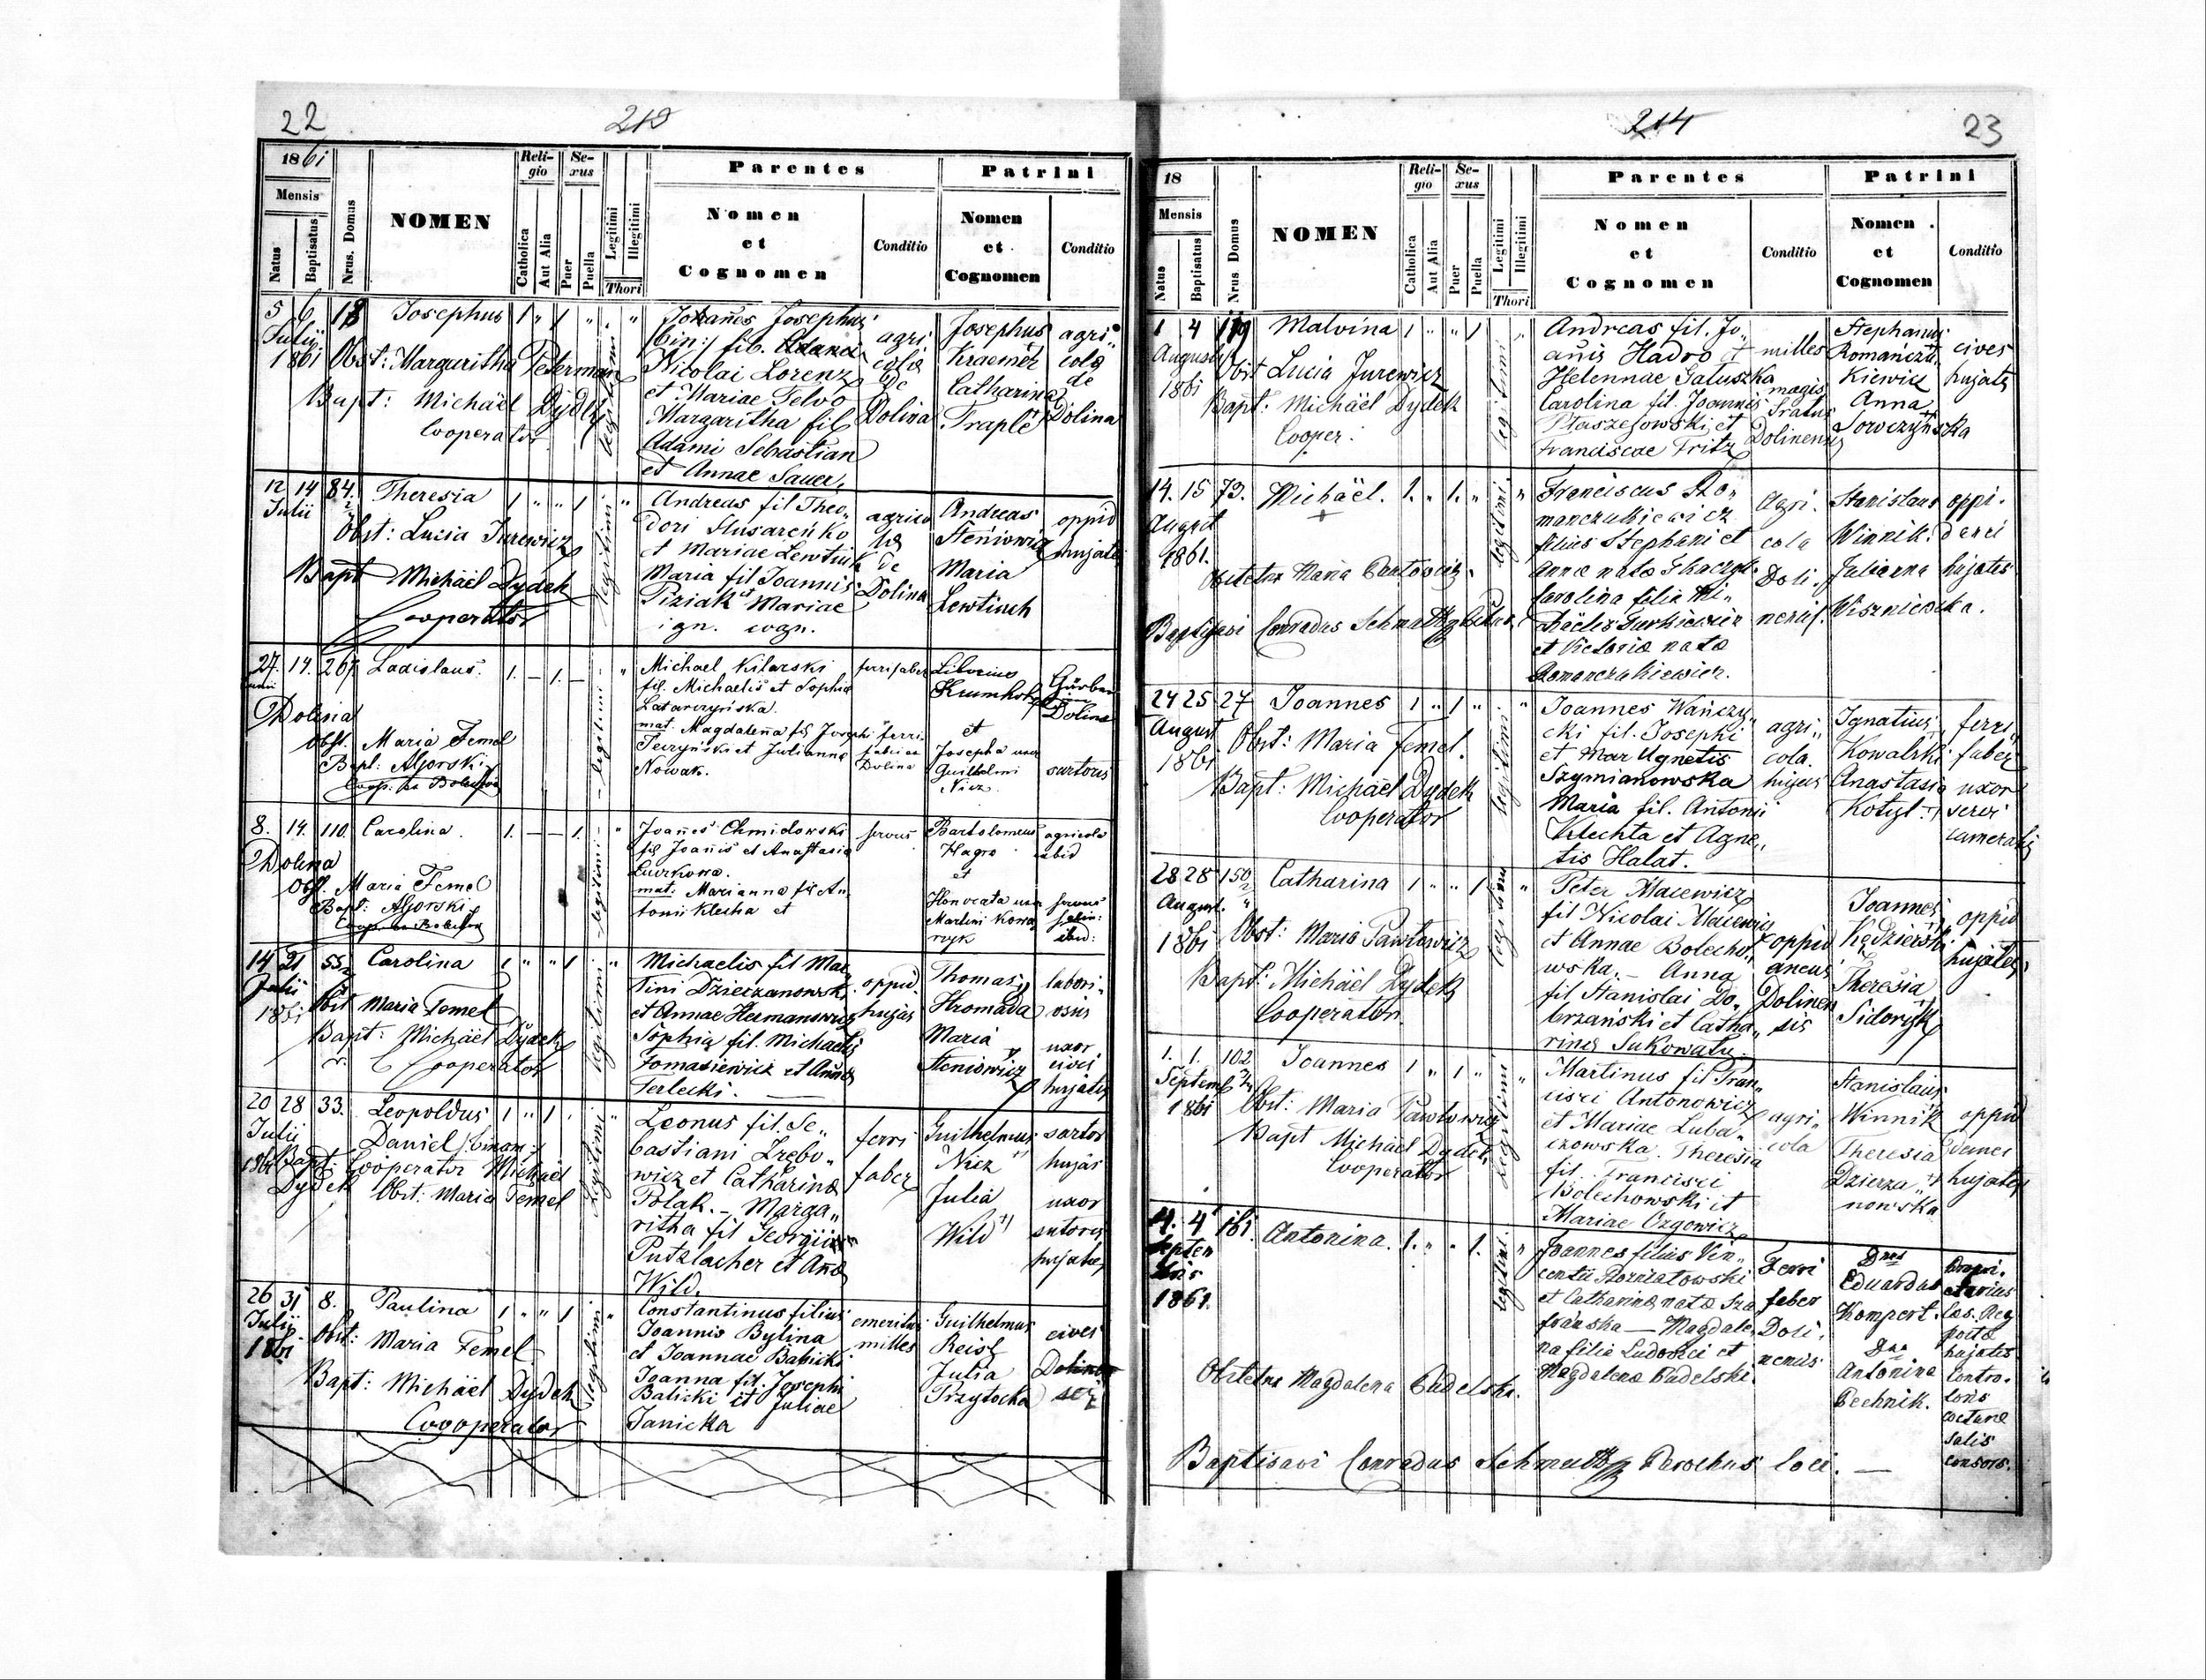 22
213
1861
Mensis
Natus
Baptisatus
Nrus. Domus
NOMEN
Reli-
gio
Catholica
Aut Alia
Se-
xus
Puer
Puella
Legitimi
Illegitimi
Thori
Parentes
Nomen
et
Cognomen
Conditio
Patrini
Nomen
et
Cognomen
Conditio
5 6 18 Josephus 1 " 1 " "
Julii
1861 Obst: Margaritha Peterman
Bapt: Michäel Dydek
Cooperator
legitimi
Johañes Josephus
bin: fil.
Nicolai Lorenz
et Mariae Selvo
Margaritha fil
Adami Sebastian
et Annae Sauer.
agri
cola
de
Dolina
Josephus
Kraemer
Catharina
Traple
agri"
cola
de
Dolina
12 14 84. Theresia 1 " " 1 "
Julii
Obst: Lucia Jurewicz
Bapt Michäel Dydek
Cooperator
legitimi
Andreas fil Theo"
dori Slusareńko
et Mariae Lewtiuk
Maria fil Joannis
Piziak et Mariae
ign. cogn.
agrico
la
de
Dolina
Andreas
Steniowicz
Maria
Lewtiuch
oppid
hujates
27. 14. 267. Ladislaus. 1. — 1. — "
Dolina
Obst. Maria Femel
Bapt: Algorski
Coop.
legitimi
Michael Kilarski
fil. Michaelis et Sophia
Latarczyńska.
mat. Magdalena fil Josephi
et Julianna
Nowak.
ferrifaber
ferri
Dolina
Liborius
Krumholz
et
Josepha uxor
Guilhelmi
Nicz.
Dolina
sartoris
8. 14. 110. Carolina. 1. — — 1. "
Dolina
Obst. Maria Femel
Bapt: Algorski
Coop.
legitimi
Joañes Chmidowski
fil Joañis et Anastasia
mat: Marianna fil An
tonii Klecha et
servus
Bartolomeus
Hagro
et
Honorata uxor
Martini Kowal
agricola
ibid
ibid:
14 21 55 Carolina 1 " " 1 "
Julii
1861 Obst Maria Femel
Bapt: Michäel Dydek
Cooperator
legitimi
Michaelis fil Mar
tini Dzierzanowski
et Annae Hermanowicz
Sophia fil. Michaelis
Tomasiewicz et Anna
Terlecki. —
oppid.
hujas
Thomas
Hromada
Maria
Steniowicz
labori"
osus
uxor
civis
hujates
20 28 33. Leopoldus 1 " 1 . "
Julii Daniel
1861 Bapt: Cooperator Michäel
Dydek Obst: Maria Femel
legitimi
Leonus fil. Se"
bastiani Zrębo"
wicz et Catharina
Polak. - Marga"
ritha fil Georgii
Putzlacher et Añae
Wild.
ferri
faber
Guilhelmus
Nicz
Julia
Wild
sartor
hujas
uxor
sutoris
hujates
26 31 8. Paulina 1 " " 1 "
Julii
1861 Obst: Maria Femel
Bapt: Michäel Dydek
Cooperator
legitimi
Constantinus filius
Joannis Bylina
et Joannae Babicki
Joanna fil. Josephi
Balicki et Juliae
Janicka
emeritus
milles
Guilhelmus
Reis
Julia
Przytocka
cives
23
214
18
Mensis
Natus
Baptisatus
Nrus Domus
NOMEN
Reli-
gio
Catholica
Aut Alia
Se-
xus
Puer
Puella
Legitimi
Illegitimi
Thori
Parentes
Nomen
et
Cognomen
Conditio
Patrini
Nomen
et
Cognomen
Conditio
1 4 119 Malvina 1 " " 1 "
Augusti
1861 Obst Lucia Jurewicz
Bapt: Michäel Dydek
Cooper.
legitimi
Andreas fil. Jo"
añis Hadro et
Helennae Gałuszka
Carolina fil. Joannis
Ptaszejowski et
Franciscae Fritz
milles
magis
tratus
Dolinensis
Stephanus
Romańczu"
kiewicz
Anna
Sowczyńska
cives
hujates
14. 15 73. Michäel. 1. " 1. " "
August
1861.
Obstetrix Maria Pawłowicz.
Baptisavi Conradus Schmutz
legitimi
Franciscus Ro"
manczukiewicz
filius Stephani et
Annæ natæ Tkaczyk.
Carolina filia Mi"
chäelis Turkiewicz
et Victoriæ natæ
Romanczukiewicz.
Agri.
cola
Doli.
nensis.
Stanislaus
Winnik.
Julianna
Wiszniewska.
oppi.
danei
hujates
24 25 27 Joannes 1 " 1 " "
August
1861
Obst: Maria Femel.
Bapt: Michäel Dydek
Cooperator
legitimi
Joannes Wańczy"
cki fil. Josephi
et Mar Agnetis
Szymianowska
Maria fil. Antonii
Klechta et Agne"
tis Halat.
agri"
cola.
hujas
Ignatius
Kowalski
Anastasia
Kotyl
ferri
faber
uxor
servi
cameralis
28 28 150 Catharina 1 " " 1 "
August.
1861 Obst: Maria Pawłowicz
Bapt: Michäel Dydek
Cooperator.
legitimi
Peter Macewicz
fil Nicolai Macewicz
et Annae Bolecho"
wska. - Anna
fil Stanislai Do"
brzański et Catha"
rina Sukowata.
oppid
aneus
Dolinen
sis
Joannes
Kędzierski
Theresia
Sidoryk
oppid
hujates
1. 1. 102 Joannes 1 " 1 " "
Septemb
1861 Obst: Maria Pawłowicz
Bapt Michäel Dydek
Cooperator
legitimi
Martinus fil Fran"
cisci Antonowicz
et Mariae Luba"
czowska. Theresia
fil. Francisci
Bolechowski et
Mariae Ozgowicz
agri"
cola
Stanislaus
Winnik
Theresia
Dzierza"
nowska
oppid
danei
hujates
4. 4 161. Antonina. 1. " " 1. "
Septem
bris
1861.
Obstetrix Magdalena Padelski.
legitimi
Joannes filius Vin"
centii Poniatowski
et Catharinæ natæ Sza
frańska — Magdale"
na filia Ludovici et
Magdalenæ Padelski.
Ferri
faber
Doli.
nensis
Dnus
Eduardus
Kompert.
Dna
Antonina
Pechnik.
Propri.
etarius
cæs. Reg
postæ
hujates.
Contro.
loris
cocturæ
salis
consors.
Baptisavi Conradus Schmutz Parochus loci. —